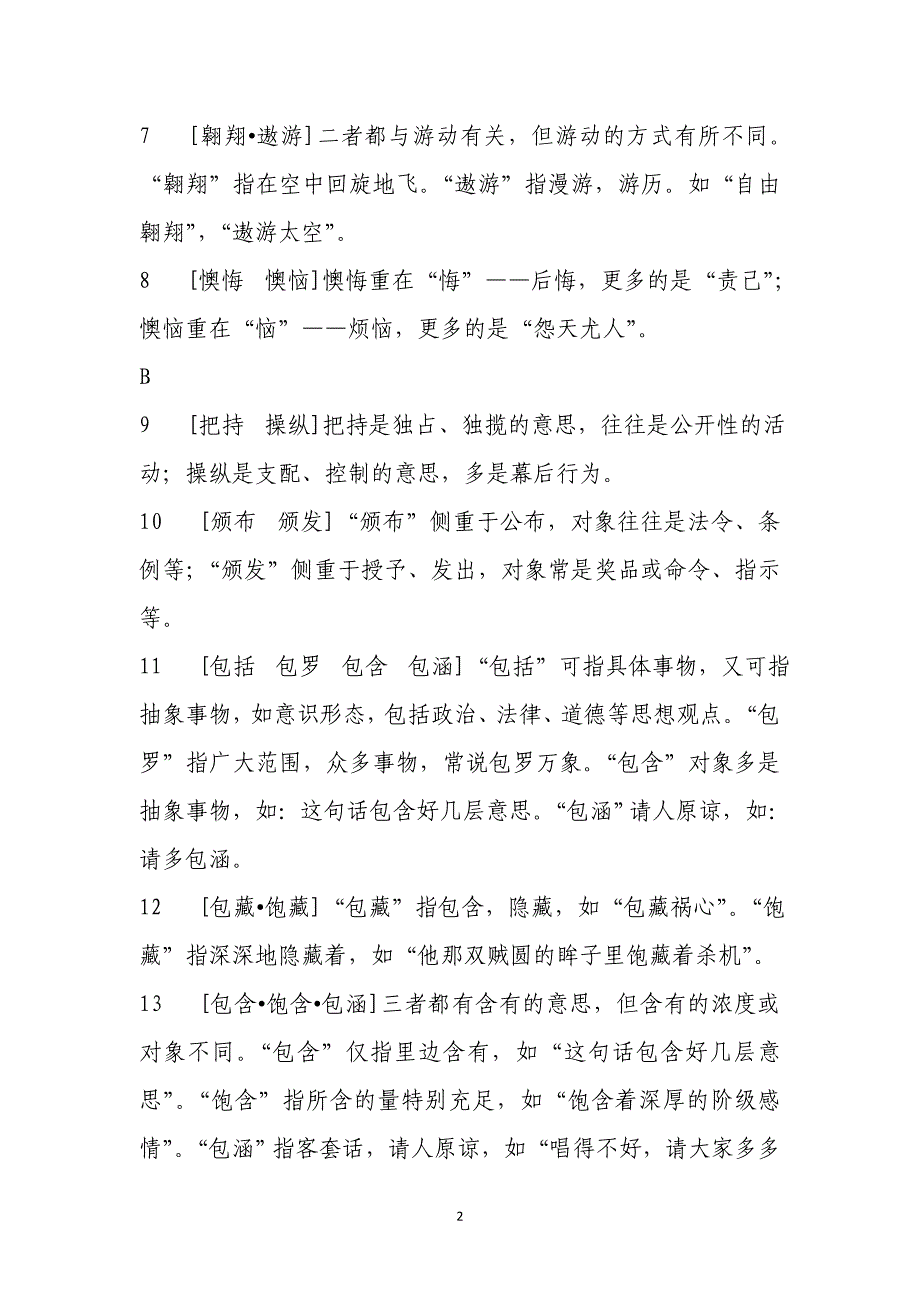 7 [翱翔•遨游]二者都与游动有关，但游动的方式有所不同。
“翱翔”指在空中回旋地飞。“遨游”指漫游，游历。如“自由
翱翔”，“遨游太空”。
8 [懊悔 懊恼]懊悔重在“悔”——后悔，更多的是“责己”；
懊恼重在“恼”——烦恼，更多的是“怨天尤人”。
B
9 [把持 操纵]把持是独占、独揽的意思，往往是公开性的活
动；操纵是支配、控制的意思，多是幕后行为。
10 [颁布 颁发]“颁布”侧重于公布，对象往往是法令、条
例等；“颁发”侧重于授予、发出，对象常是奖品或命令、指示
等。
11 [包括 包罗 包含 包涵]“包括”可指具体事物，又可指
抽象事物，如意识形态，包括政治、法律、道德等思想观点。“包
罗”指广大范围，众多事物，常说包罗万象。“包含”对象多是
抽象事物，如：这句话包含好几层意思。“包涵”请人原谅，如：
请多包涵。
12 [包藏•饱藏]“包藏”指包含，隐藏，如“包藏祸心”。“饱
藏”指深深地隐藏着，如“他那双贼圆的眸子里饱藏着杀机”。
13 [包含•饱含•包涵]三者都有含有的意思，但含有的浓度或
对象不同。“包含”仅指里边含有，如“这句话包含好几层意
思”。“饱含”指所含的量特别充足，如“饱含着深厚的阶级感
情”。“包涵”指客套话，请人原谅，如“唱得不好，请大家多多
2